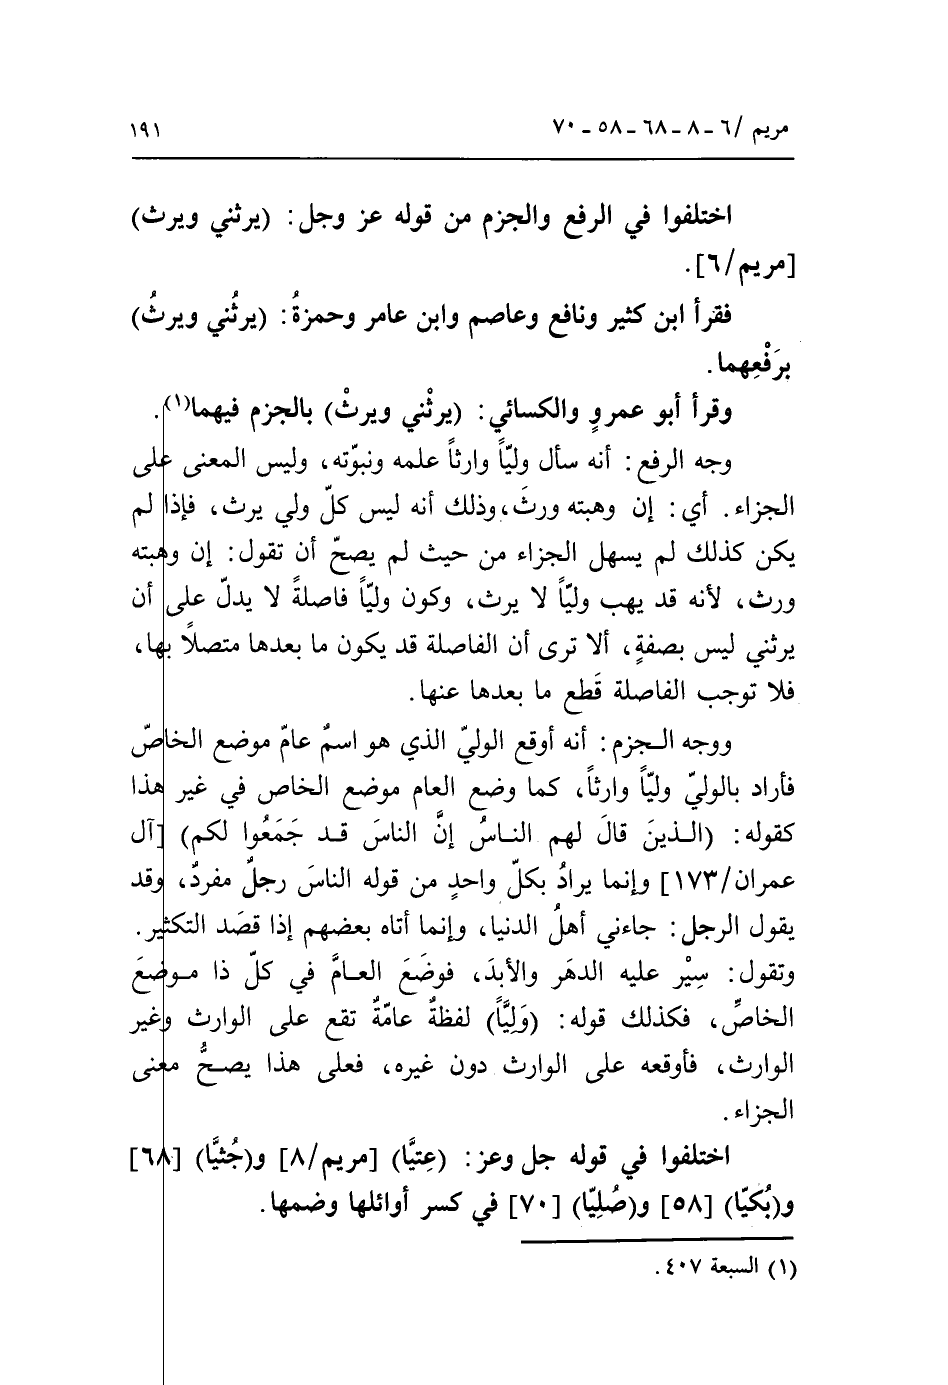 مريم /٦ - ٨ - ٦٨ - ٥٨ - ٧٠
١٩١
اختلفوا في الرفع والجزم من قوله عز وجل: (يرثني ويرث)
[مريم/٦].
فقرأ ابن كثير ونافع وعاصم وابن عامر وحمزةُ: (يرثُني ويرثُ)
برَفْعِهما.
وقرأ أبو عمروٍ والكسائي: (يرثْني ويرثْ) بالجزم فيهما(١).
وجه الرفع: أنه سأل وليّاً وارثاً علمه ونبوّته، وليس المعنى على
الجزاء. أي: إن وهبته ورثَ، وذلك أنه ليس كلّ ولي يرث، فإذا لم
يكن كذلك لم يسهل الجزاء من حيث لم يصحّ أن تقول: إن وهبته
ورث، لأنه قد يهب وليّاً لا يرث، وكون وليّاً فاصلةً لا يدلّ على أن
يرثني ليس بصفةٍ، ألا ترى أن الفاصلة قد يكون ما بعدها متصلًا بها،
فلا توجب الفاصلة قَطع ما بعدها عنها.
ووجه الجزم: أنه أوقع الوليّ الذي هو اسمٌ عامّ موضع الخاصّ
فأراد بالوليّ وليّاً وارثاً، كما وضع العام موضع الخاص في غير هذا
كقوله: (الذينَ قالَ لهم الناسُ إنَّ الناسَ قد جَمَعُوا لكم) [آل
عمران/١٧٣] وإنما يرادُ بكلّ واحدٍ من قوله الناسَ رجلٌ مفردٌ، وقد
يقول الرجل: جاءني أهلُ الدنيا، وإنما أتاه بعضهم إذا قصَد التكثير.
وتقول: سِيْر عليه الدهَر والأبدَ، فوضَعَ العامَّ في كلّ ذا موضعَ
الخاصِّ، فكذلك قوله: (وَلِيًّاً) لفظةٌ عامّةٌ تقع على الوارث وغير
الوارث، فأوقعه على الوارث دون غيره، فعلى هذا يصحُّ معنى
الجزاء.
اختلفوا في قوله جل وعز: (عِتيَّا) [مريم/٨] و(جُثيَّا) [٦٨]
و(بُكيّا) [٥٨] و(صُلِيّا) [٧٠] في كسر أوائلها وضمها.
(١) السبعة ٤٠٧.